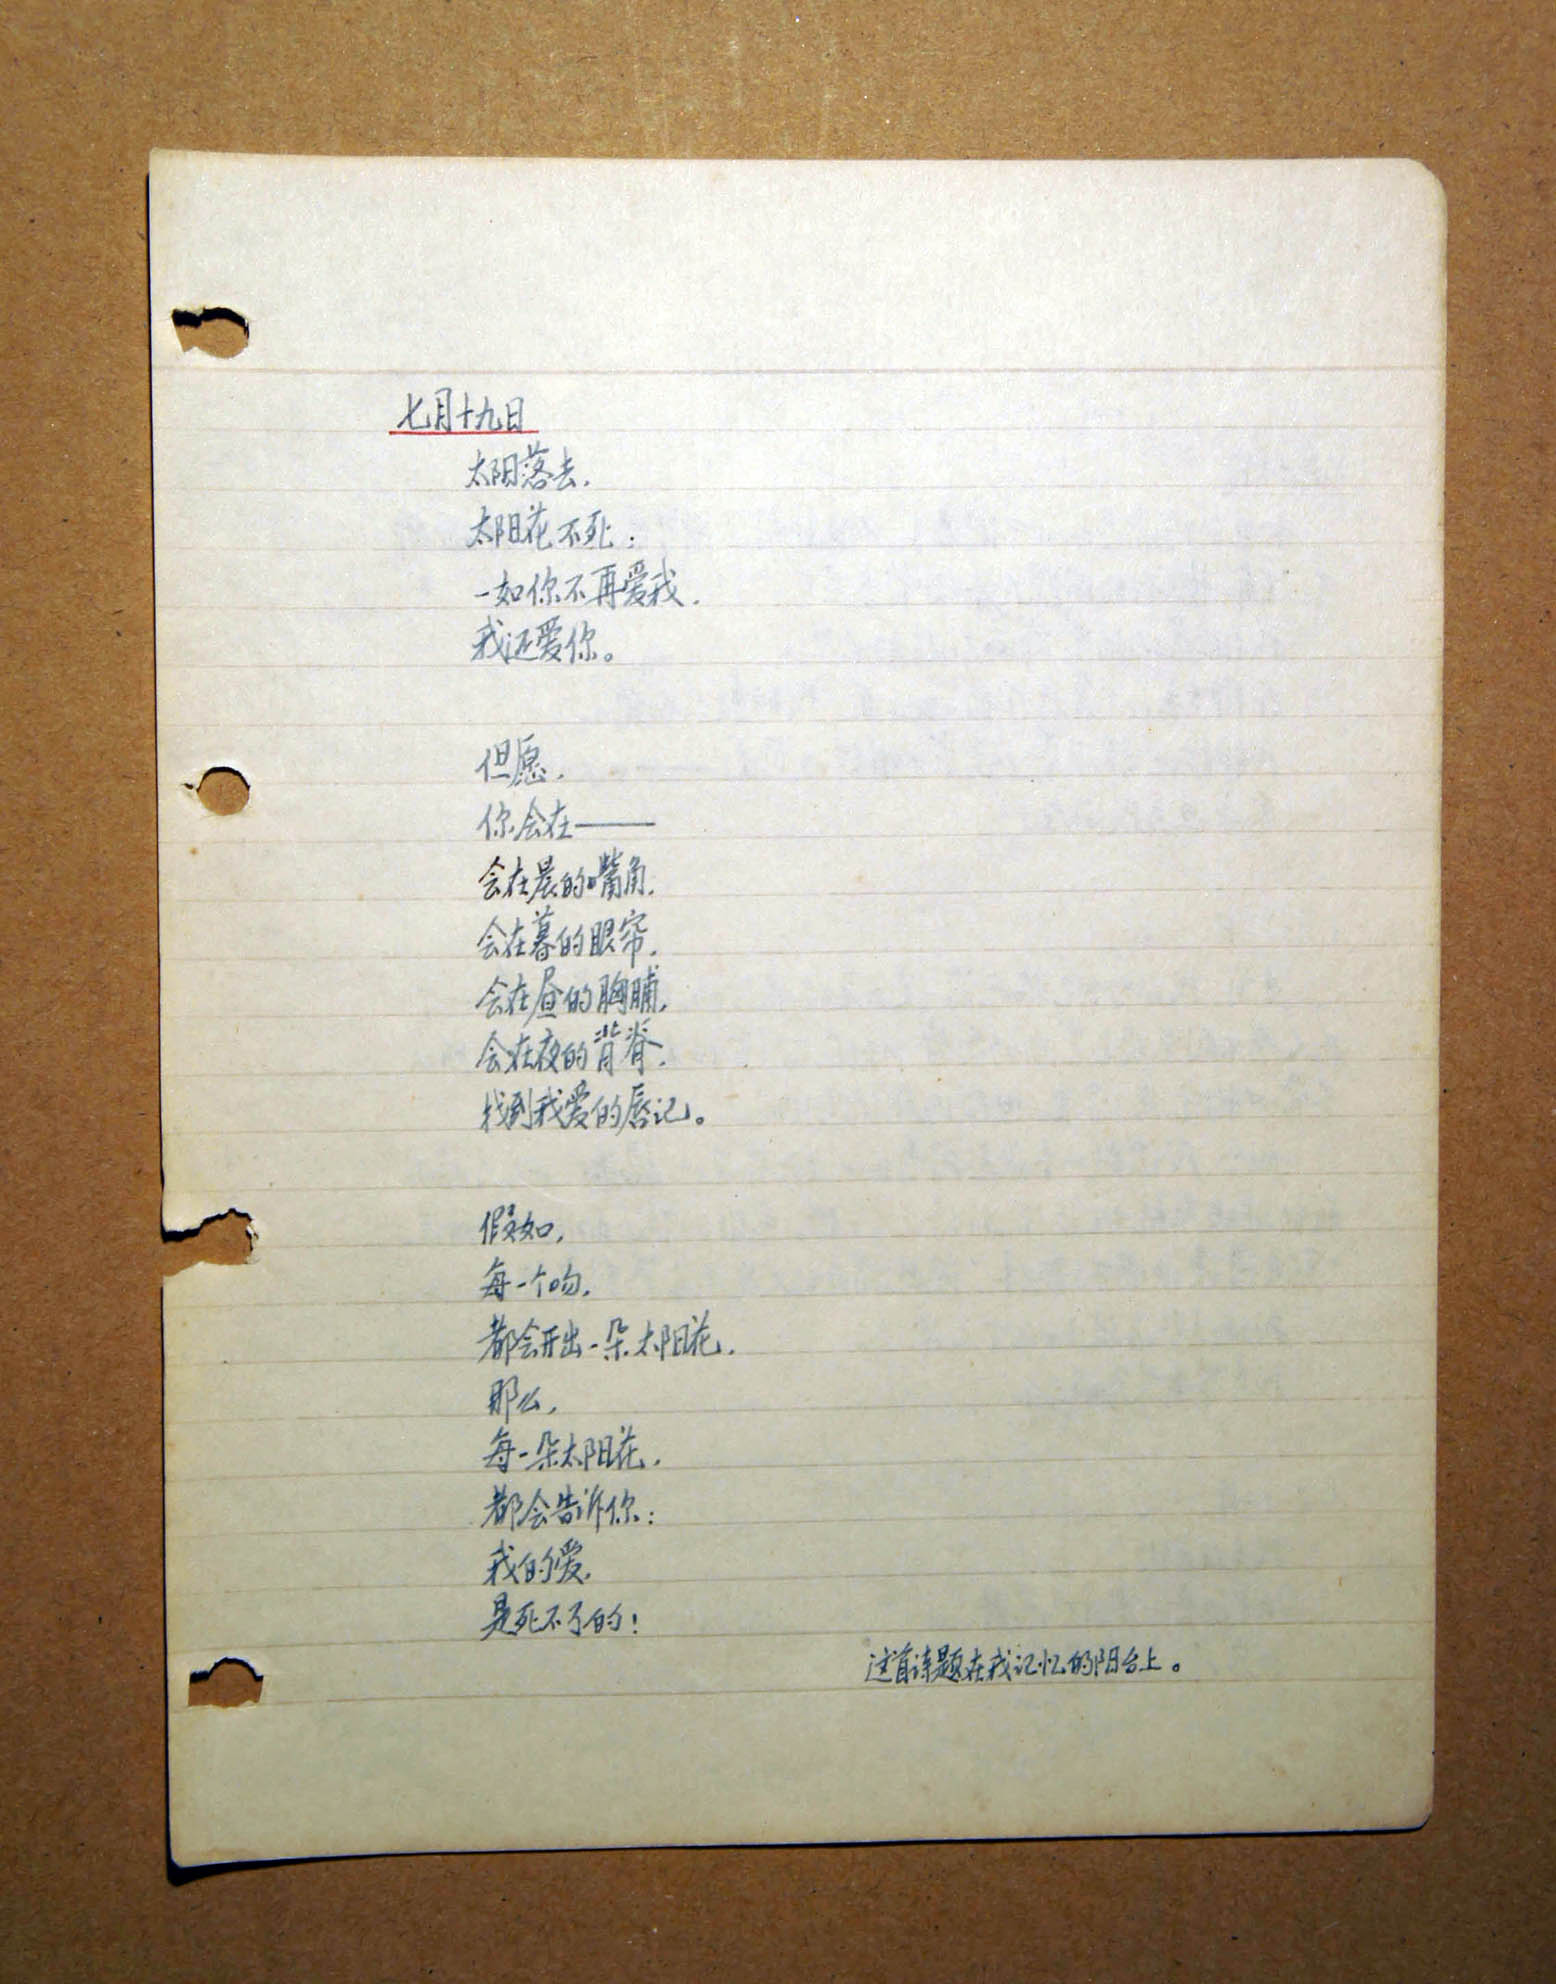 七月十九日
太阳落去，
太阳花不死；
一如你不再爱我，
我还爱你。
但愿，
你会在——
会在晨的嘴角，
会在暮的眼帘，
会在昼的胸脯，
会在夜的背脊，
找到我爱的唇记。
假如，
每一个吻，
都会开出一朵太阳花，
那么，
每一朵太阳花，
都会告诉你：
我的爱，
是死不了的！
这首诗题在我记忆的阳台上。